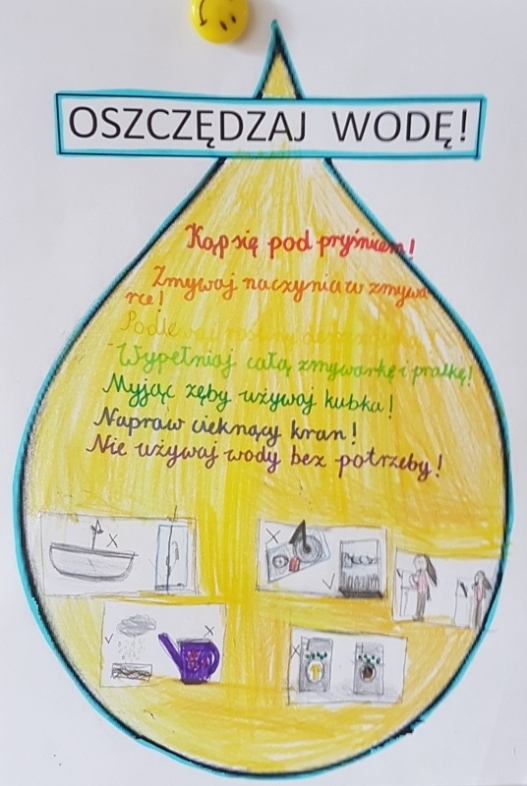 OSZCZĘDZAJ WODĘ!
Kąp się pod pryśnicem!
Zmywaj naczynia w zmywa
rce!
Podlewaj rośliny
Wypełniaj całą zmywarkę i pralkę!
Myjąc zęby używaj kubka!
Napraw cieknący kran!
Nie używaj wody bez potrzeby!